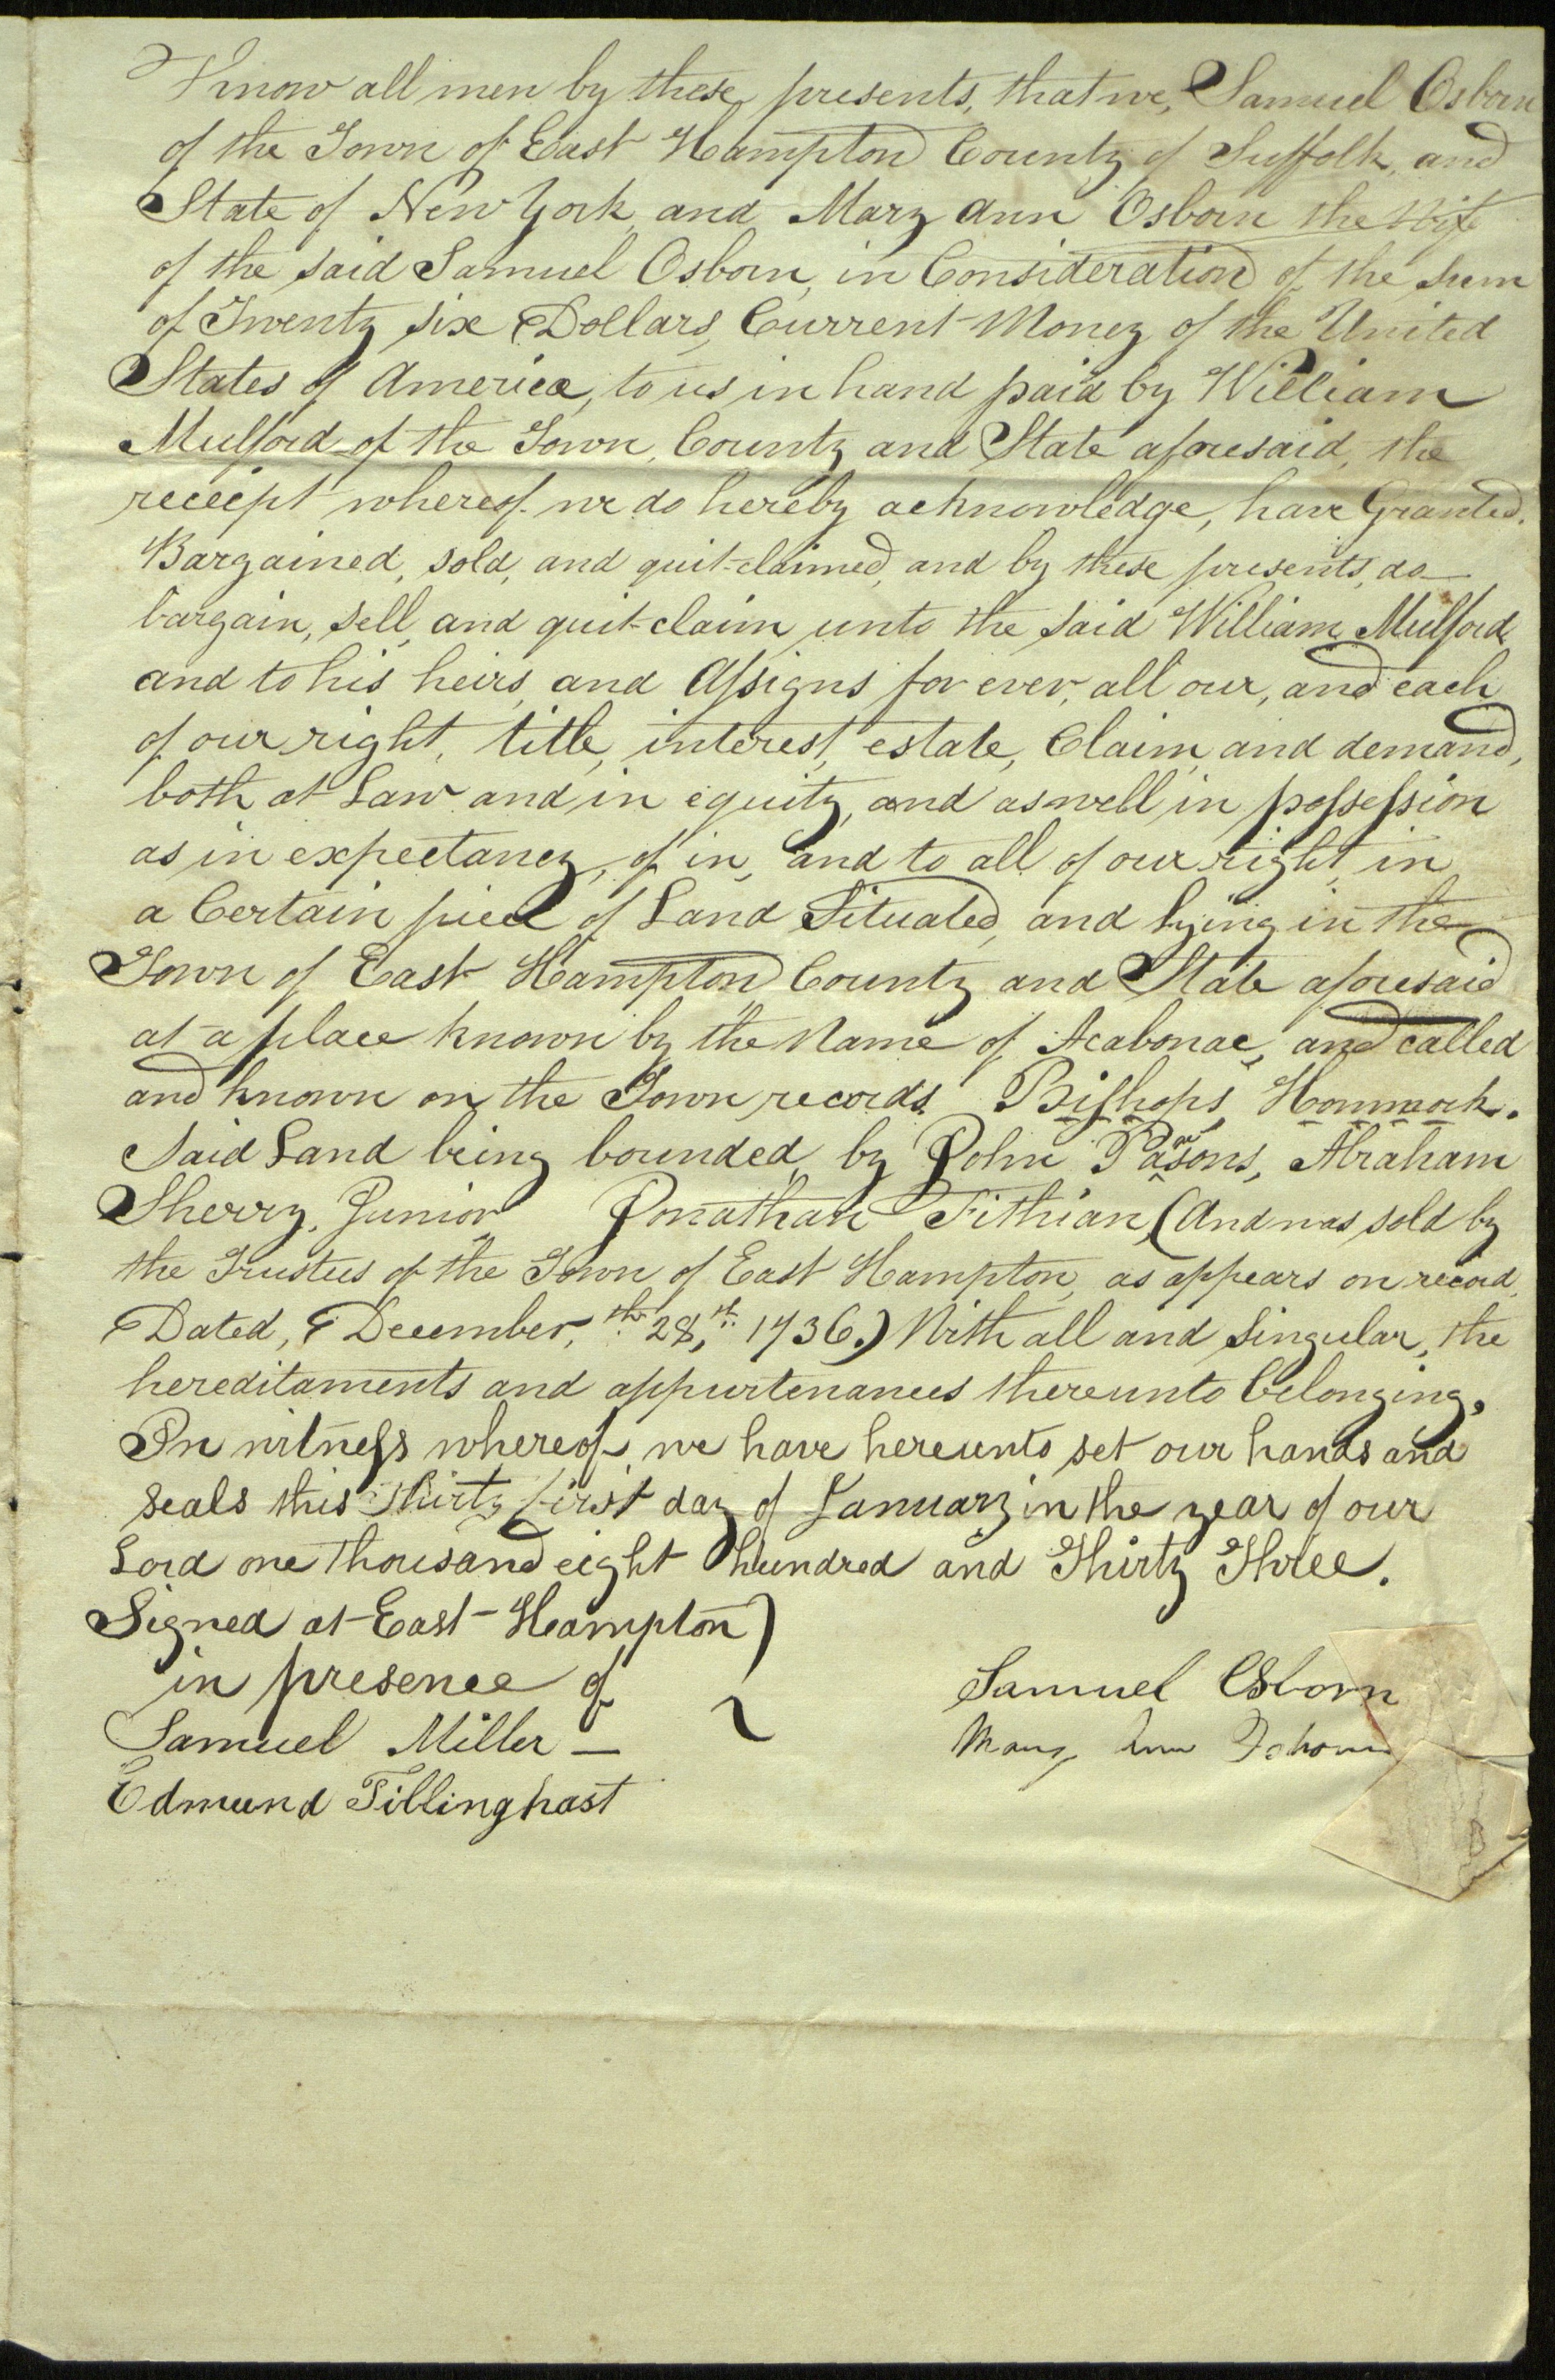 Know all men by these presents, that we, Samuel Osborn
of the Town of East Hampton County of Suffolk, and
State of New York, and Mary Ann Osborn the Wife
of the said Samuel Osborn, in Consideration of the sum
of Twenty six Dollars, Current Money of the United
States of America, to us in hand paid by William
Mulford of the Town, County and State aforesaid, the
receipt whereof we do hereby acknowledge, have Granted,
Bargained, sold, and quit-claimed, and by these presents, do
bargain, sell, and quit-claim unto the said William Mulford,
and to his heirs, and Assigns for ever, all our, and each
of our right, title, interest, estate, Claim, and demand,
both at Law and in equity, and as well in possession
as in expectancy, of in, and to all of our right, in
a Certain piece of Land Situated, and lying in the
Town of East Hampton, County and State aforesaid
at a place known by the Name of Acabonac, and called
and known on the Town records Bishops, Hommock.
Said Land being bounded, by John Parsons, Abraham
Sherry, Junior Jonathan Fithian, (And was sold by
the Trustees of the Town of East Hampton, as appears on record,
Dated, December, the 28,th 1736.) With all and Singular, the
hereditaments and appurtenances thereunto belonging,
In witness whereof, we have hereunto set our hands and
seals this thirty first day of January in the year of our
Lord one Thousand eight hundred and Thirty Three.
Signed at East-Hampton )
in presence of
Samuel Osborn
Samuel Miller —
Mary Ann Osborn
Edmund Tillinghast